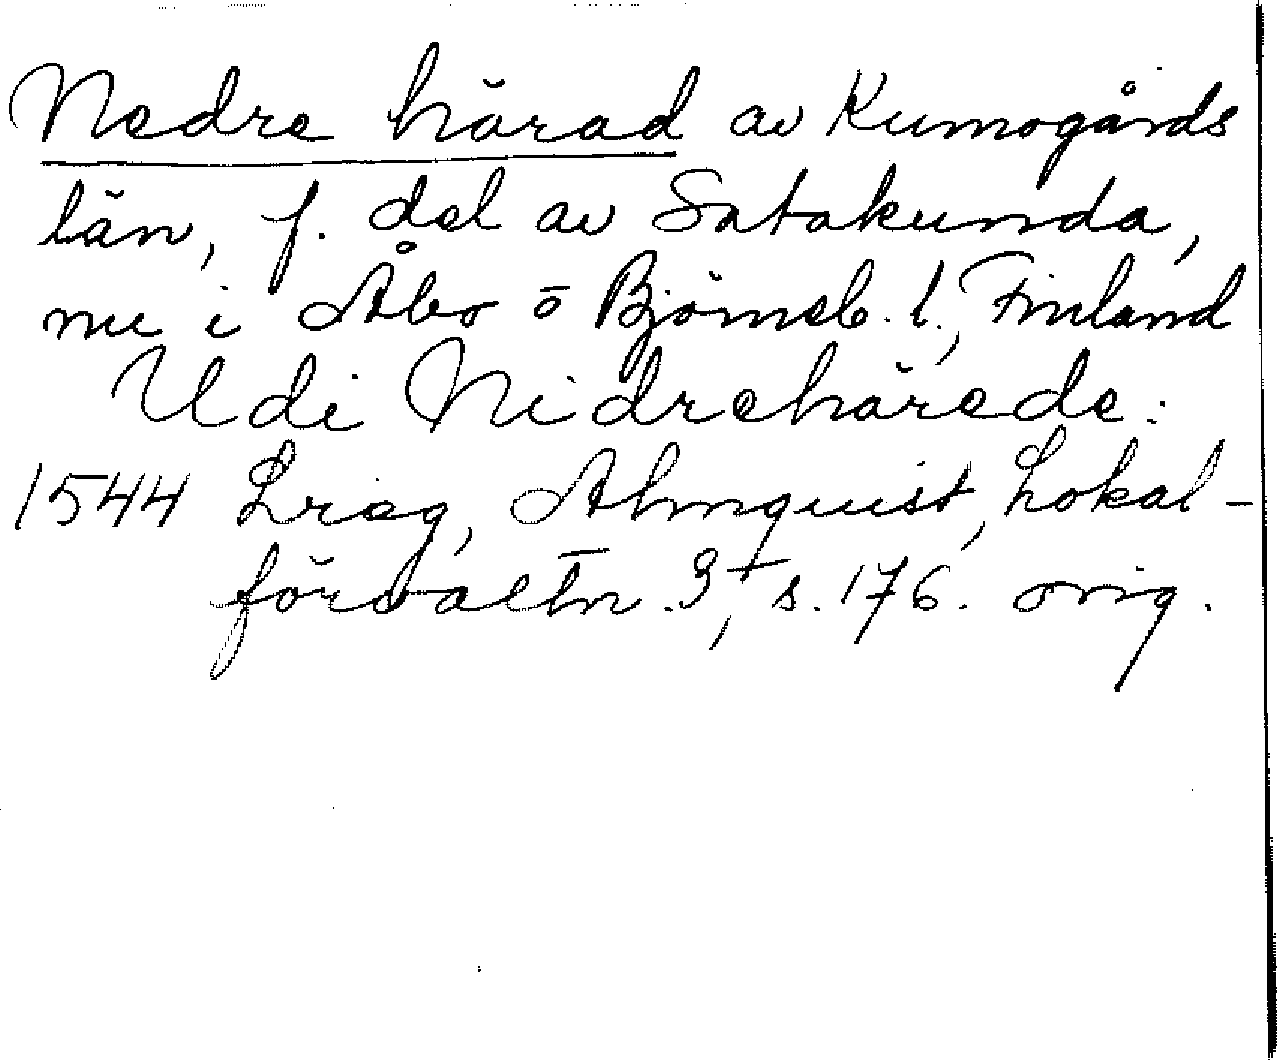 Nedre härad av Kumogårds
län, f. del av Satakunda,
nu i Åbo o Björneb. l., Finland
Udi Nidrehärede:
1544 Lreg, Almquist, Lokal-
förvaltn. 3, s. 176. orig.